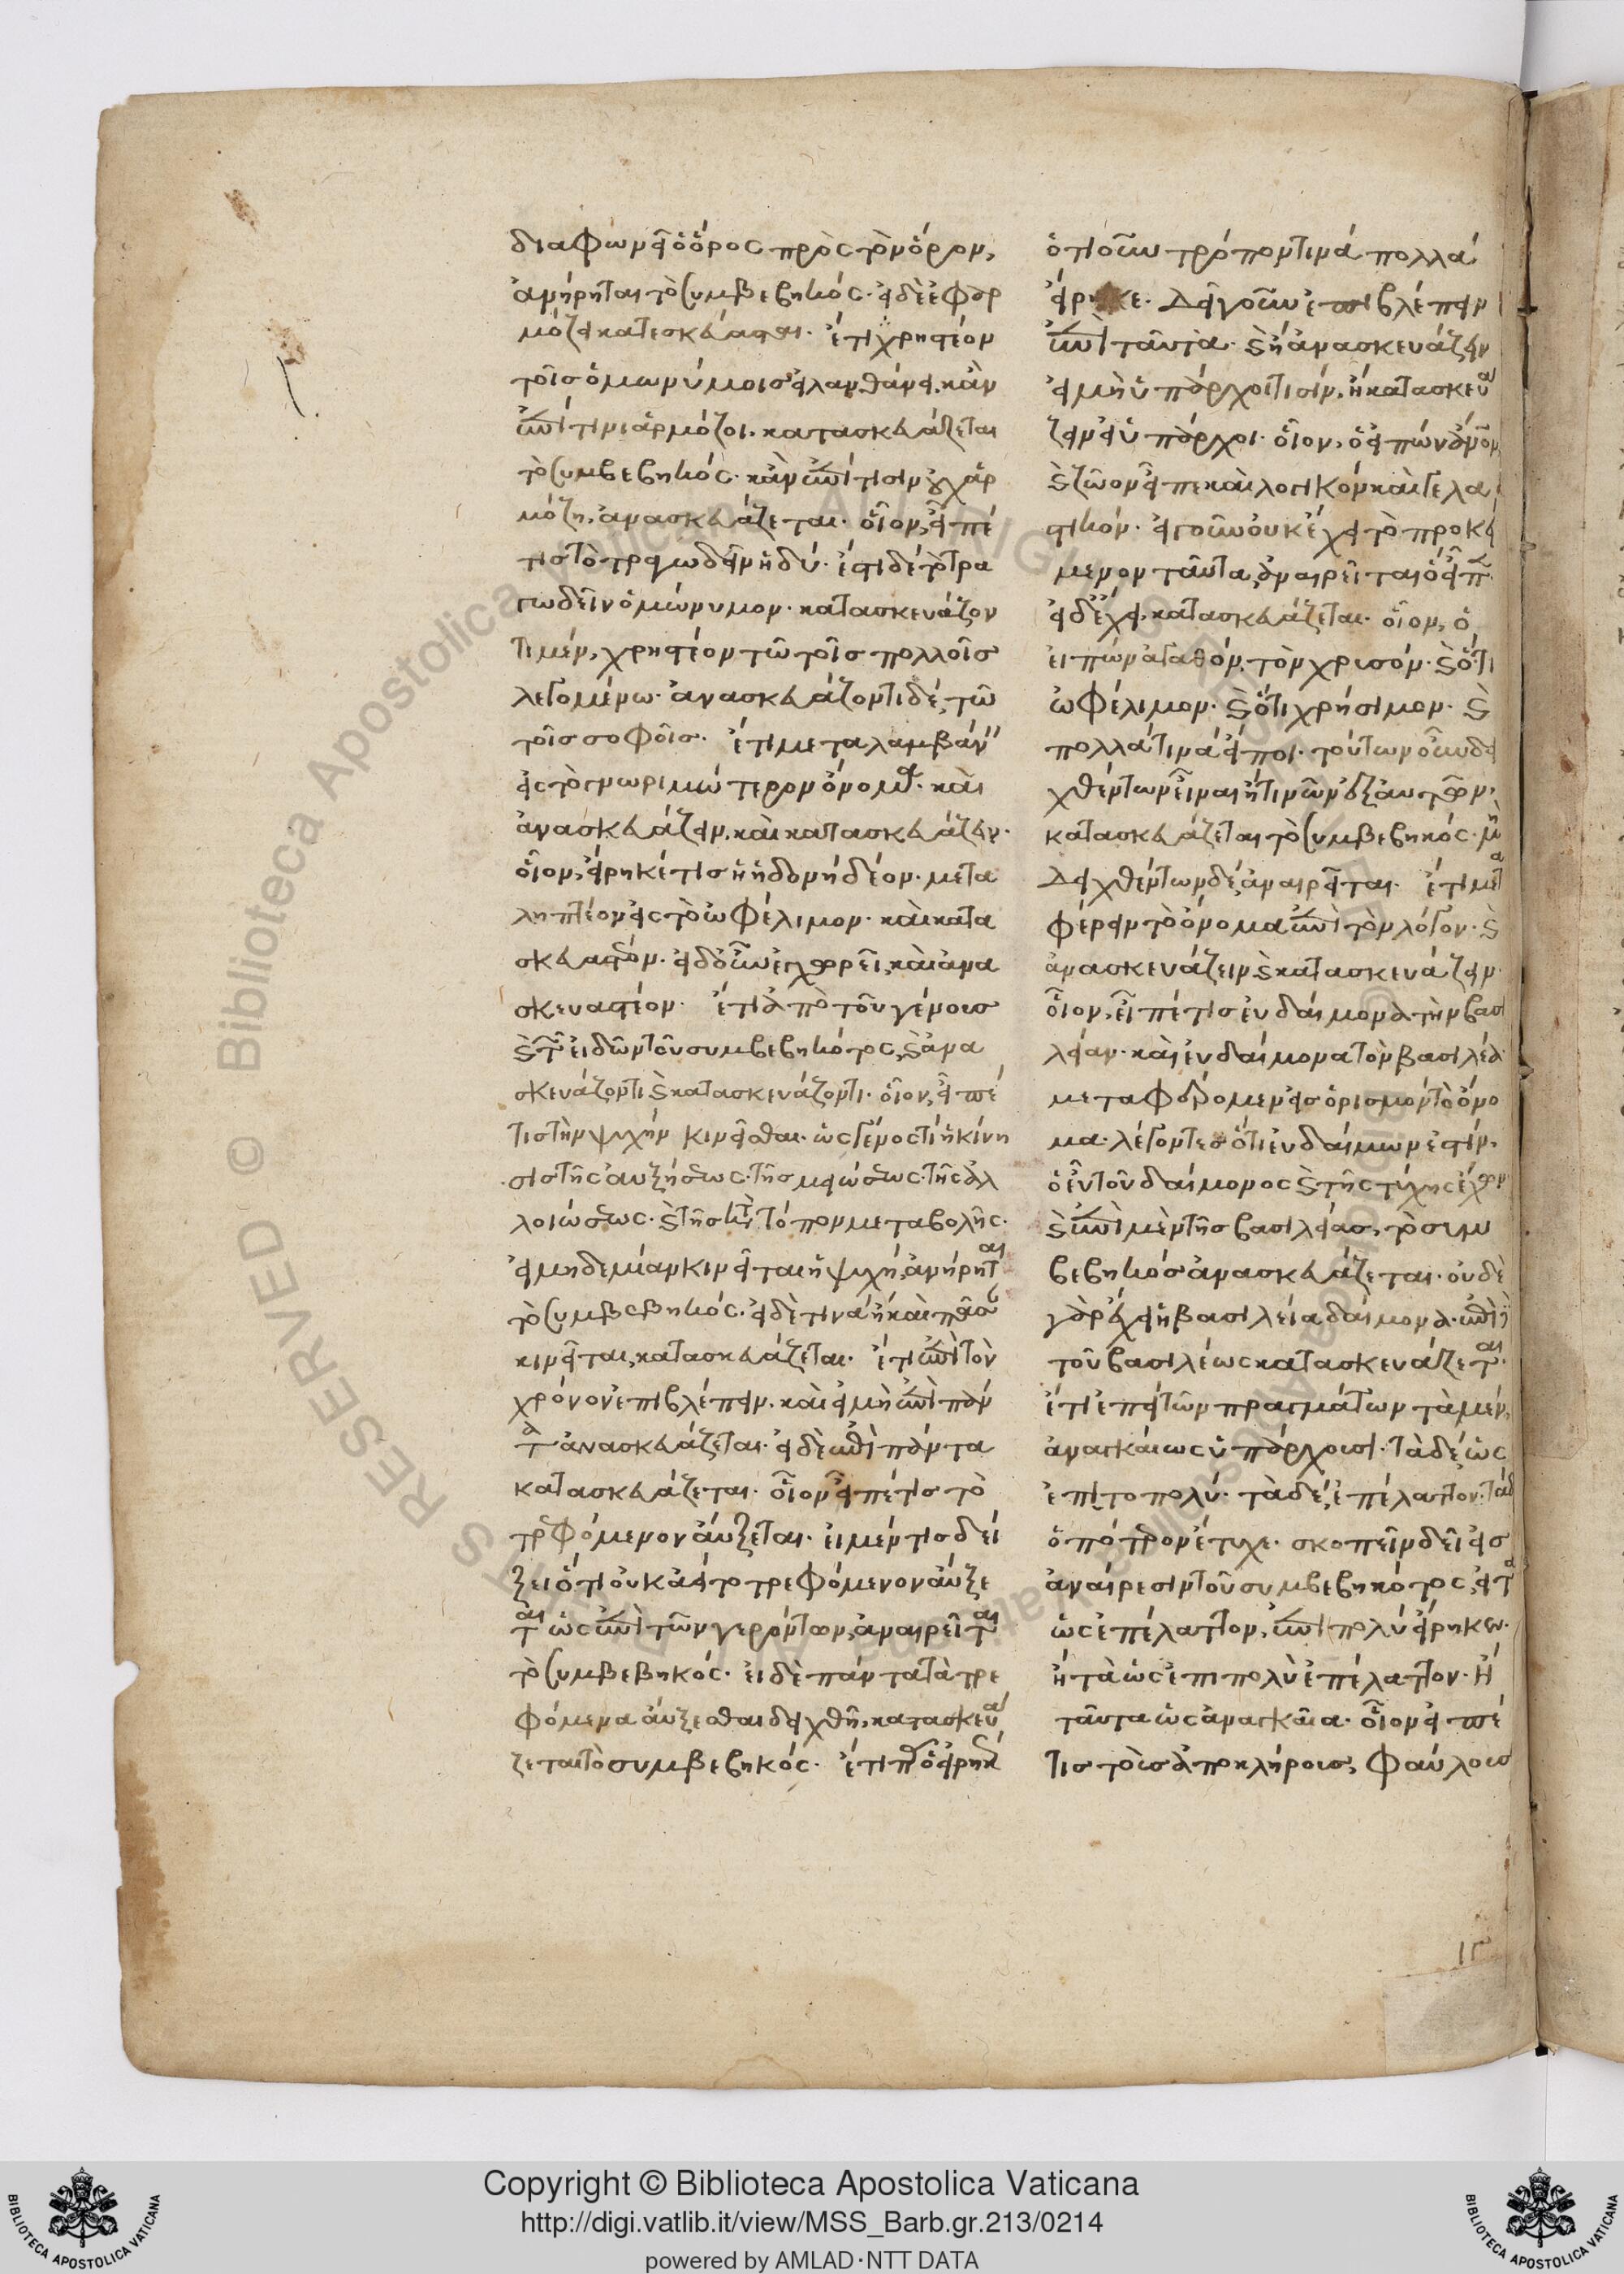 διαφωνεῖ ὁ ὅρος πρὸς τὸν ὅρον,
ἀνῄρηται τὸ συμβεβηκός. εἰ δὲ ἐφαρ
μόζει κατεσκεύασται. ἔτι χρηστέον
τοῖς ὁμωνύμοις εἰ λανθάνει, κἂν
ἐπί τινι ἁρμόζοι. κατασκευάζεται
τὸ συμβεβηκός. κἂν ἐπί τισιν οὐχ ἁρ
μόζη, ἀνασκευάζεται. οἷον, εἶπέ
τις τὸ τραγωδεῖν ἡδύ. ἔστι δὲ τὸ τρα
γωδεῖν ὁμώνυμον. κατασκευάζον
τι μέν, χρηστέον τῶ τοῖς πολλοῖς
λεγομένω. ἀνασκευάζοντι δέ, τῶ
τοῖς σοφοῖς. ἔτι μεταλαμβάνειν
εἰς τὸ γνωριμώτερον ὄνομα. καὶ
ἀνασκευάζειν, καὶ κατασκευάζειν.
οἷον, εἴρηκέ τις ἡ ἡδονὴ δέον. μετα
ληπτέον εἰς τὸ ὠφέλιμον. καὶ κατα
σκευαστέον. εἰ δ' οὖν ἐγχωρεῖ, καὶ ἀνα
σκευαστέον. ἔτι ἀπὸ τοῦ γένους
καὶ τῶν εἰδῶν τοῦ συμβεβηκότος, καὶ ἀνα
σκευάζοντι καὶ κατασκευάζοντι. οἷον, εἶπέ
τις τὴν ψυχὴν κινεῖσθαι. ὡς γένος τι ἡ κίνη
σις τῆς αὐξήσεως. τῆς μειώσεως. τῆς ἀλ
λοιώσεως. καὶ τῆς κατὰ τόπον μεταβολῆς.
εἰ μηδεμίαν κινεῖται ἡ ψυχή, ἀνήρηται
τὸ συμβεβηκός. εἰ δὲ τινὰ ἢ καὶ πλείους
κινεῖται, κατασκευάζεται. ἔτι ἐπὶ τὸν
χρόνον ἐπιβλέπειν. καὶ εἰ μὴ ἐπὶ πάν
τα ἀνασκευάζεται. εἰ δὲ ἐπὶ πάντα
κατασκευάζεται. οἷον εἶπέ τις τὸ
τρεφόμενον αὔξεται. εἰ μέν τις δεί
ξει ὅτι οὐκ ἀεὶ τὸ τρεφόμενον αὔξε
ται ὡς ἐπὶ τῶν γερόντων, ἀναιρεῖται
τὸ συμβεβηκός. εἰ δὲ πάντα τὰ τρε
φόμενα αὔξεσθαι δειχθῆ, κατασκευά
ζεται τὸ συμβεβηκός. ἔτι πᾶς ὁ εἰρηκὼς
ὁτιοῦν τρόπον τινὰ πολλὰ
εἴρηκε. δεῖ γοῦν ἐπιβλέπειν
ἐπὶ ταῦτα. καὶ ἢ ἀνασκευάζειν
εἰ μὴ ὑπάρχοι τισίν, ἢ κατασκευά
ζειν εἰ ὑπάρχοι. οἷον, ὁ εἰπὼν ἄνθρωπον
καὶ ζῶον εἶπε καὶ λογικὸν καὶ γελα
στικόν. εἰ γοῦν οὐκ ἔχει τὸ προκεί
μενον ταῦτα, ἀναιρεῖται ὃ εἶπε.
εἰ δὲ ἔχει, κατασκευάζεται. οἷον, ὁ
εἰπὼν ἀγαθὸν τὸν χρυσόν. καὶ ὅτι
ὠφέλιμον. καὶ ὅτι χρήσιμον. καὶ
πολλὰ τινὰ εἴποι. τούτων οὖν δει
χθέντων εἶναι ἤ τινῶν ἐξ αὐτῶν,
κατασκευάζεται τὸ συμβεβηκός. μὴ
δειχθέντων δὲ ἀναιρεῖται. ἔτι μετα
φέρειν τὸ ὄνομα ἐπὶ τὸν λόγον. καὶ
ἀνασκευάζειν καὶ κατασκευάζειν.
οἷον, εἶπέ τις εὐδαίμονα τὴν βασι
λείαν. καὶ εὐδαίμονα τὸν βασιλέα
μεταφέρομεν εἰς ὁρισμὸν τὸ ὄνο
μα. λέγοντες ὅτι εὐδαίμων ἐστίν,
ὁ εὖ τοῦ δαίμονος καὶ τῆς τύχης ἔχων
καὶ ἐπὶ μὲν τῆς βασιλείας, τὸ συμ
βεβηκὸς ἀνασκευάζεται. οὐδὲ
γὰρ ἔχει ἡ βασιλεία δαίμονα. ἐπὶ δὲ
τοῦ βασιλέως κατασκευάζεται.
ἔτι ἐπεὶ τῶν πραγμάτων τὰ μέν,
ἀναγκαίως ὑπάρχουσι. τὰ δέ, ὡς
ἐπὶ τὸ πολύ. τὰ δέ, ἐπ' ἔλαττον. τὰ δὲ
ὁπότερον ἔτυχε. σκοπεῖν δεῖ εἰς
ἀναίρεσιν τοῦ συμβεβηκότος, εἰ τὰ
ὡς ἐπ' ἔλαττον, ἐπὶ πολὺ εἴρηκεν.
ἢ τὰ ὡς ἐπιπολὺ ἐπ' ἔλαττον. ἢ
ταῦτα ὡς ἀναγκαῖα. οἷον εἶπέ
τις τοὺς ἀποκλήρους, φαύλους
Copyright © Biblioteca Apostolica Vaticana
http://digi.vatlib.it/view/MSS_Barb.gr.213/0214
powered by AMLAD·NTT DATA